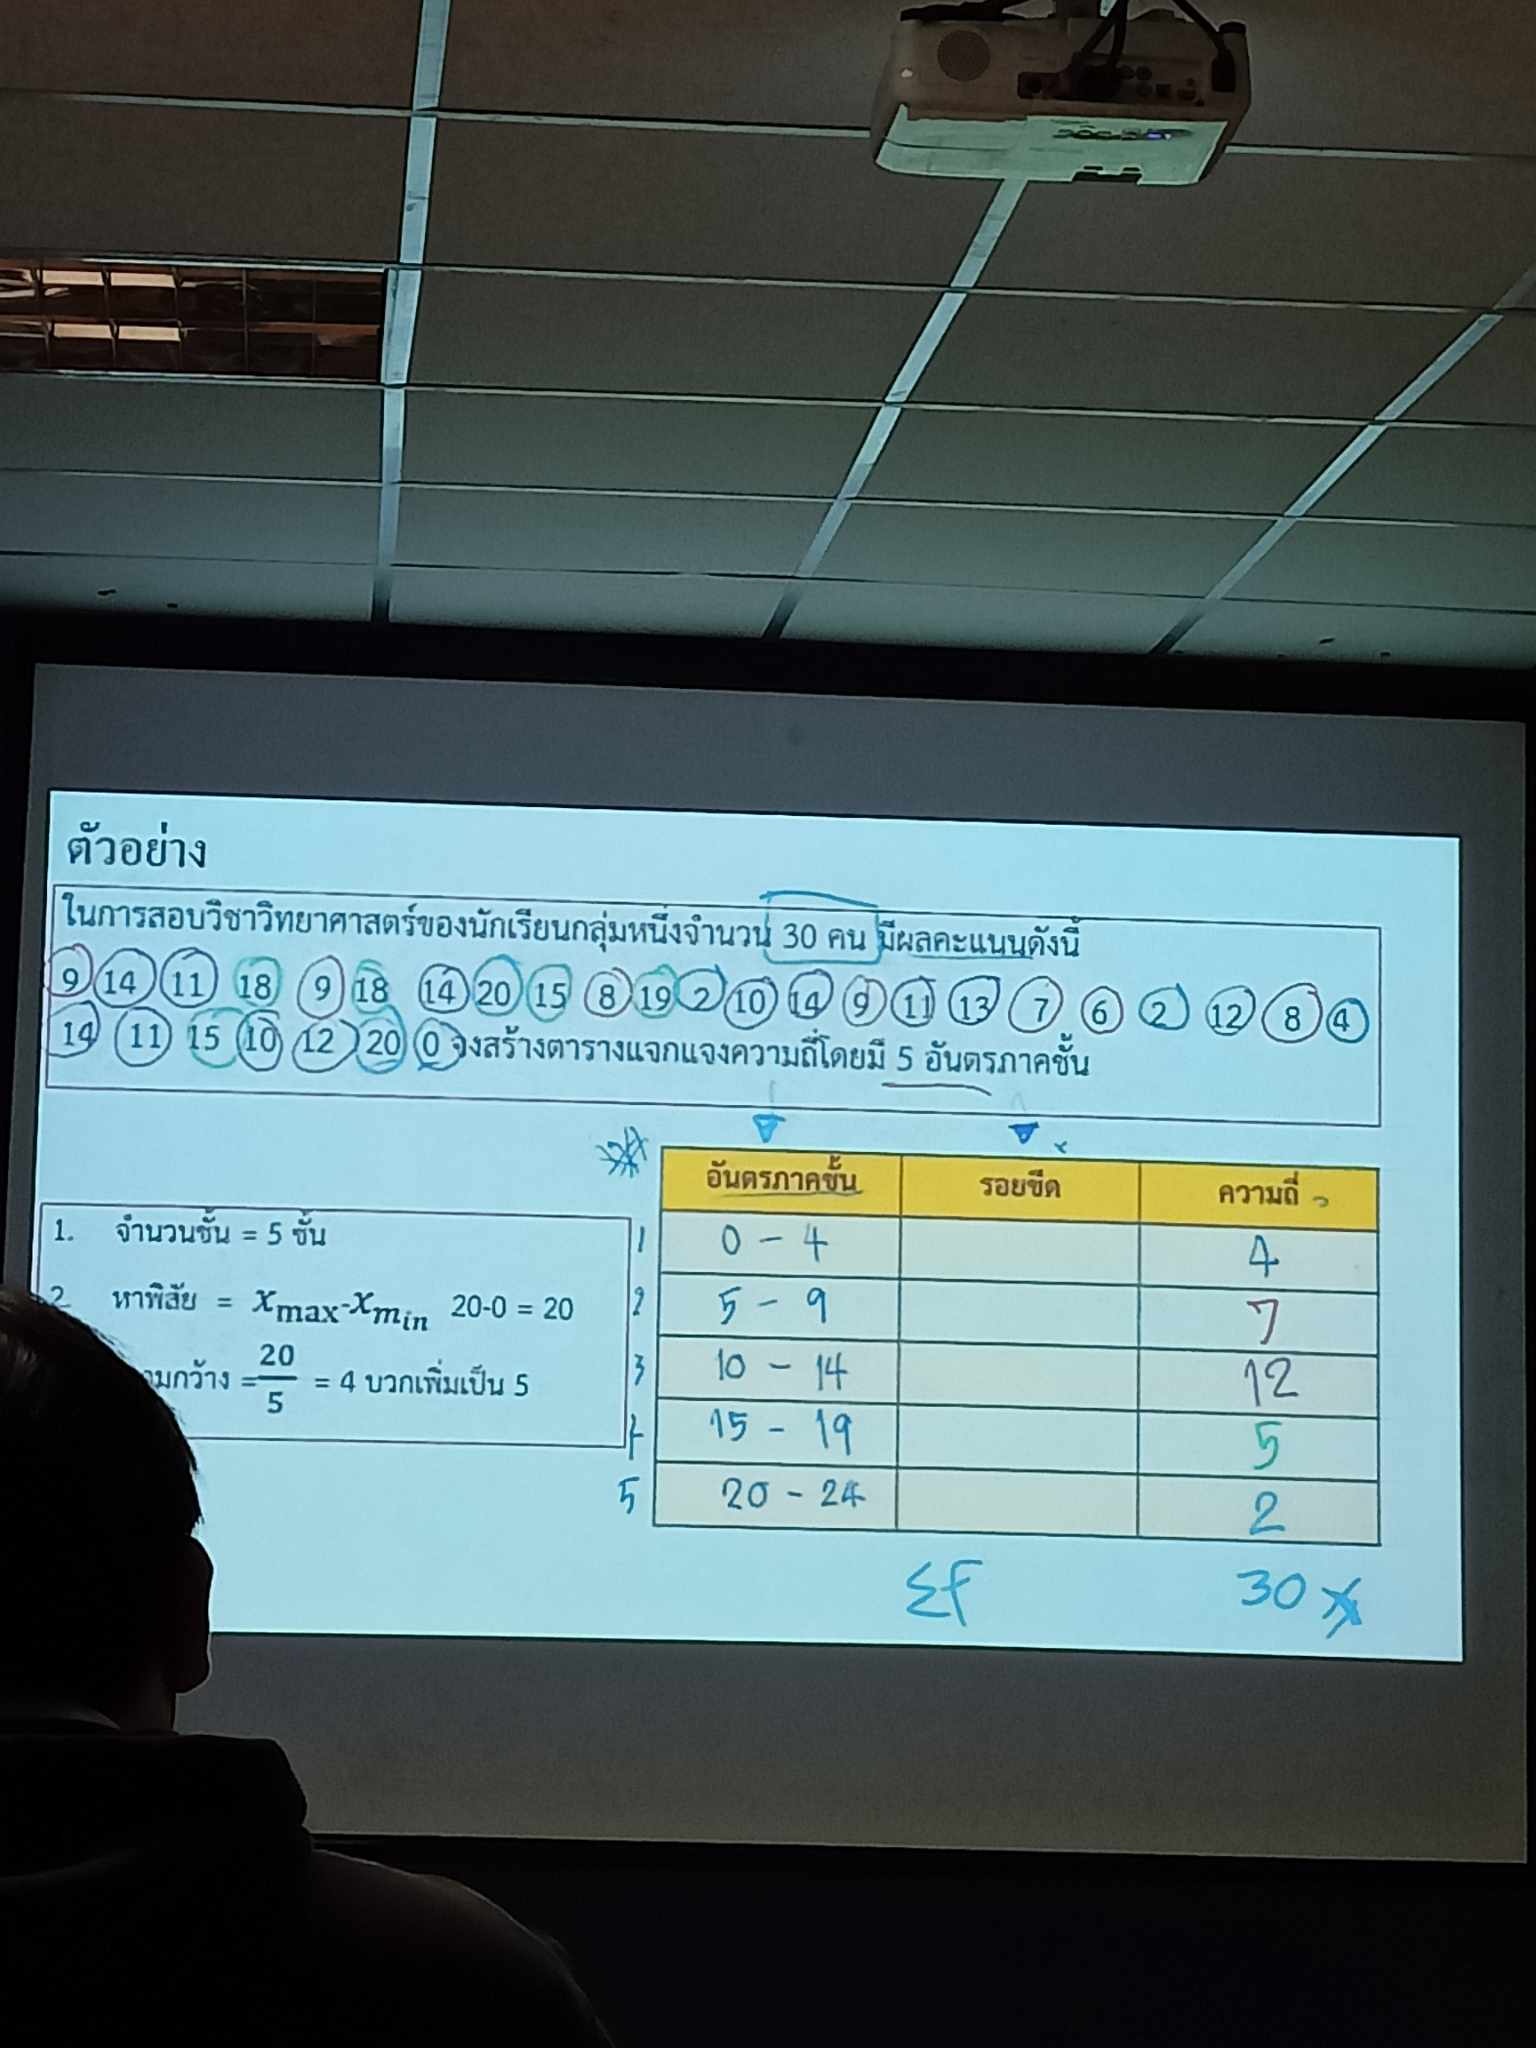 ตัวอย่าง
ในการสอบวิชาวิทยาศาสตร์ของนักเรียนกลุ่มหนึ่งจำนวน 30 คน มีผลคะแนนดังนี้
9 14 11 18 9 18 14 20 15 8 19 2 10 14 9 11 13 7 6 2 12 8 4
14 11 15 10 12 20 0 จงสร้างตารางแจกแจงความถี่โดยมี 5 อันตรภาคชั้น
1. จำนวนชั้น = 5 ชั้น
2. หาพิสัย = xmax-xmin 20-0 = 20
กว้าง = 20/5 = 4 บวกเพิ่มเป็น 5
อันตรภาคชั้น รอยขีด ความถี่
1 0 - 4 4
2 5 - 9 7
3 10 - 14 12
4 15 - 19 5
5 20 - 24 2
Σf 30